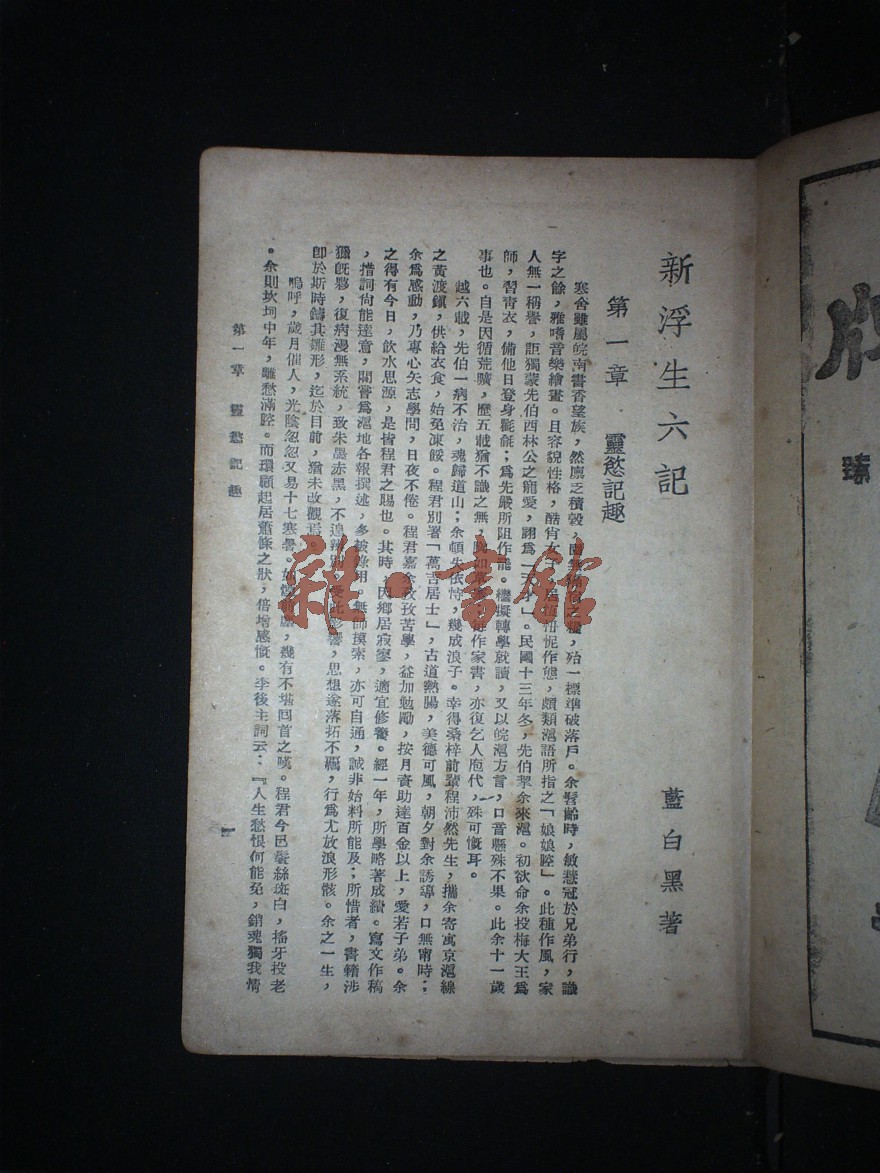 新浮生六記
藍白黑著
第一章 靈慾記趣
寒舍雖屬皖南書香望族,然廩乏積穀,殆一標準破落戶。余髫齡時,敏慧冠於兄弟行,識
字之餘,雅嗜音樂繪畫。且容貌性格,酷肖女子,忸怩作態,頗類滬語所指之「娘娘腔」。此種作風,家
人無一稱譽,詎獨蒙先伯西林公之寵愛,詡爲「天才」。民國十三年冬,先伯挈余來滬。初欲命余投梅大王爲
師,習靑衣,備他日登身氍毹;爲先嚴所阻作罷。櫰擬轉學就讀,又以皖滬方言,口音懸殊不果。此余十一歲
事也。自是因循荒曠,歷五載猶不識之無,每作家書,亦復乞人庖代,殊可慨耳。
越六載,先伯一病不治,魂歸道山;余頓失依恃,幾成浪子。幸得桑梓前輩程沛然先生,攜余寄寓京滬線
之黃渡鎭,供給衣食,始免凍餒。程君別署「萬吉居士」,古道熱腸,美德可風,朝夕對余誘導,口無甯時;
余爲感動,乃專心矢志學問,日夜不倦。程君嘉余孜孜苦學,益加勉勵,按月資助達百金以上,愛若子弟。余
之得有今日,飲水思源,是皆程君之賜也。其時,因鄉居寂寥,適宜修養。經一年,所學略著成績。寫文作稿
,措詞尙能達意,間嘗爲滬地各報撰述,多被錄用。無師摸索,亦可自通,誠非始料所能及;所惜者,書籍涉
獵旣夥,復病漫無系統,致朱墨赤黑,不遑辨別,受此影響,思想遂落拓不羈,行爲尤放浪形骸。余之一生,
卽於斯時鑄其雛形,迄於目前,猶未改觀焉。
嗚呼,歲月催人,光陰忽忽又易十七寒暑。幾有不堪回首之嘆。程君今已鬢絲斑白,搖牙投老
。余則坎坷中年,離愁滿腔。而環顧起居蕭條之狀,倍增感慨。李後主詞云:『人生愁恨何能免,銷魂獨我情
第一章 靈慾記趣
一
雜·書館